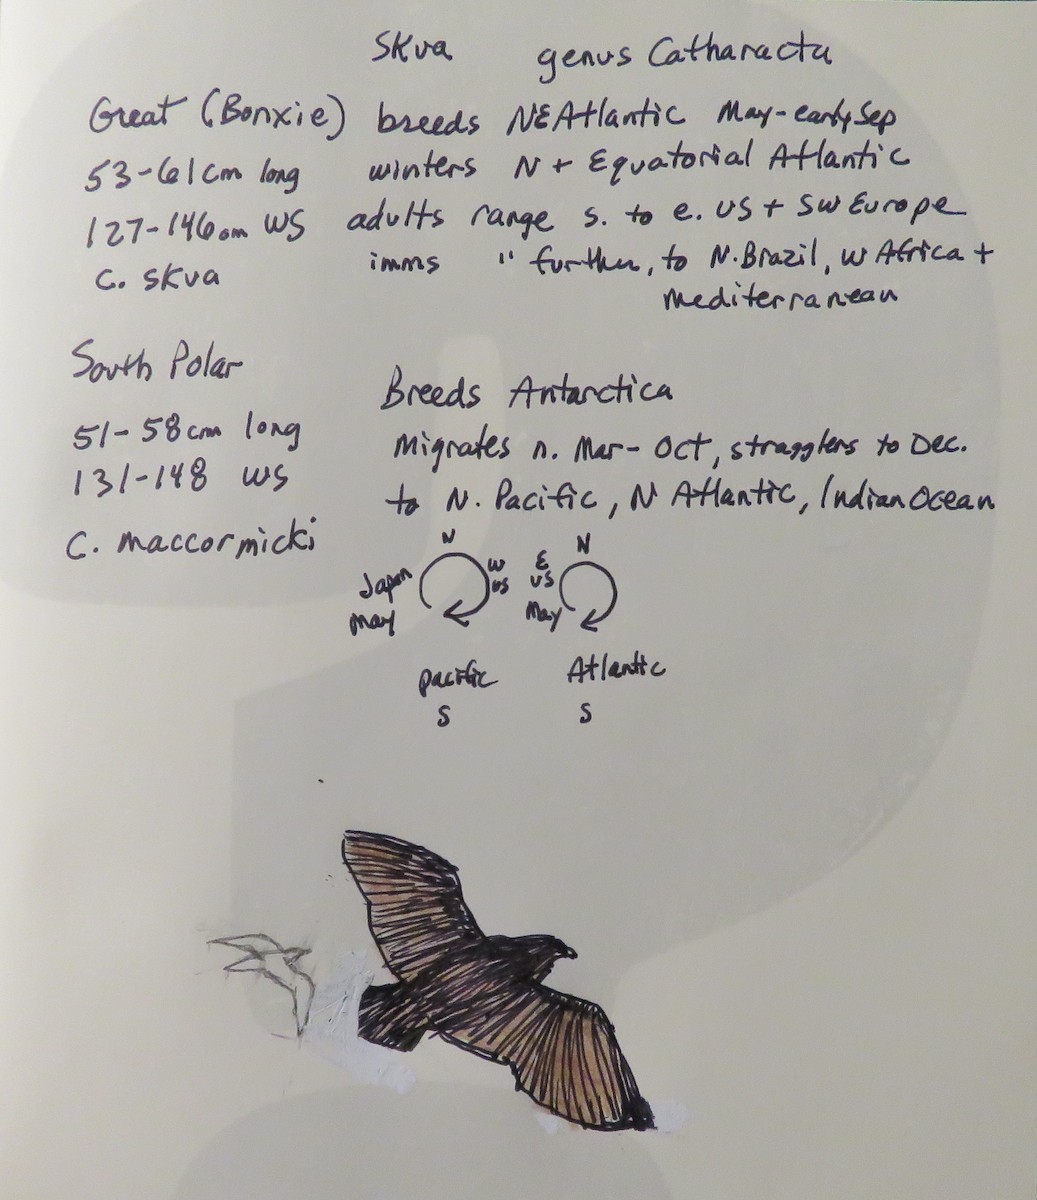 Skua genus Catharacta
Great (Bonxie) breeds NE Atlantic May-early Sep
53-61cm long winters N + Equatorial Atlantic
127-146cm WS adults range s. to e. US + SW Europe
C. skua imms " further, to N. Brazil, w Africa +
mediterranean
South Polar
Breeds Antarctica
51-58cm long Migrates n. Mar-Oct, stragglers to Dec.
131-148 WS to N. Pacific, N Atlantic, Indian Ocean
C. maccormicki
N N
Japan W US E US
May May
pacific Atlantic
S S